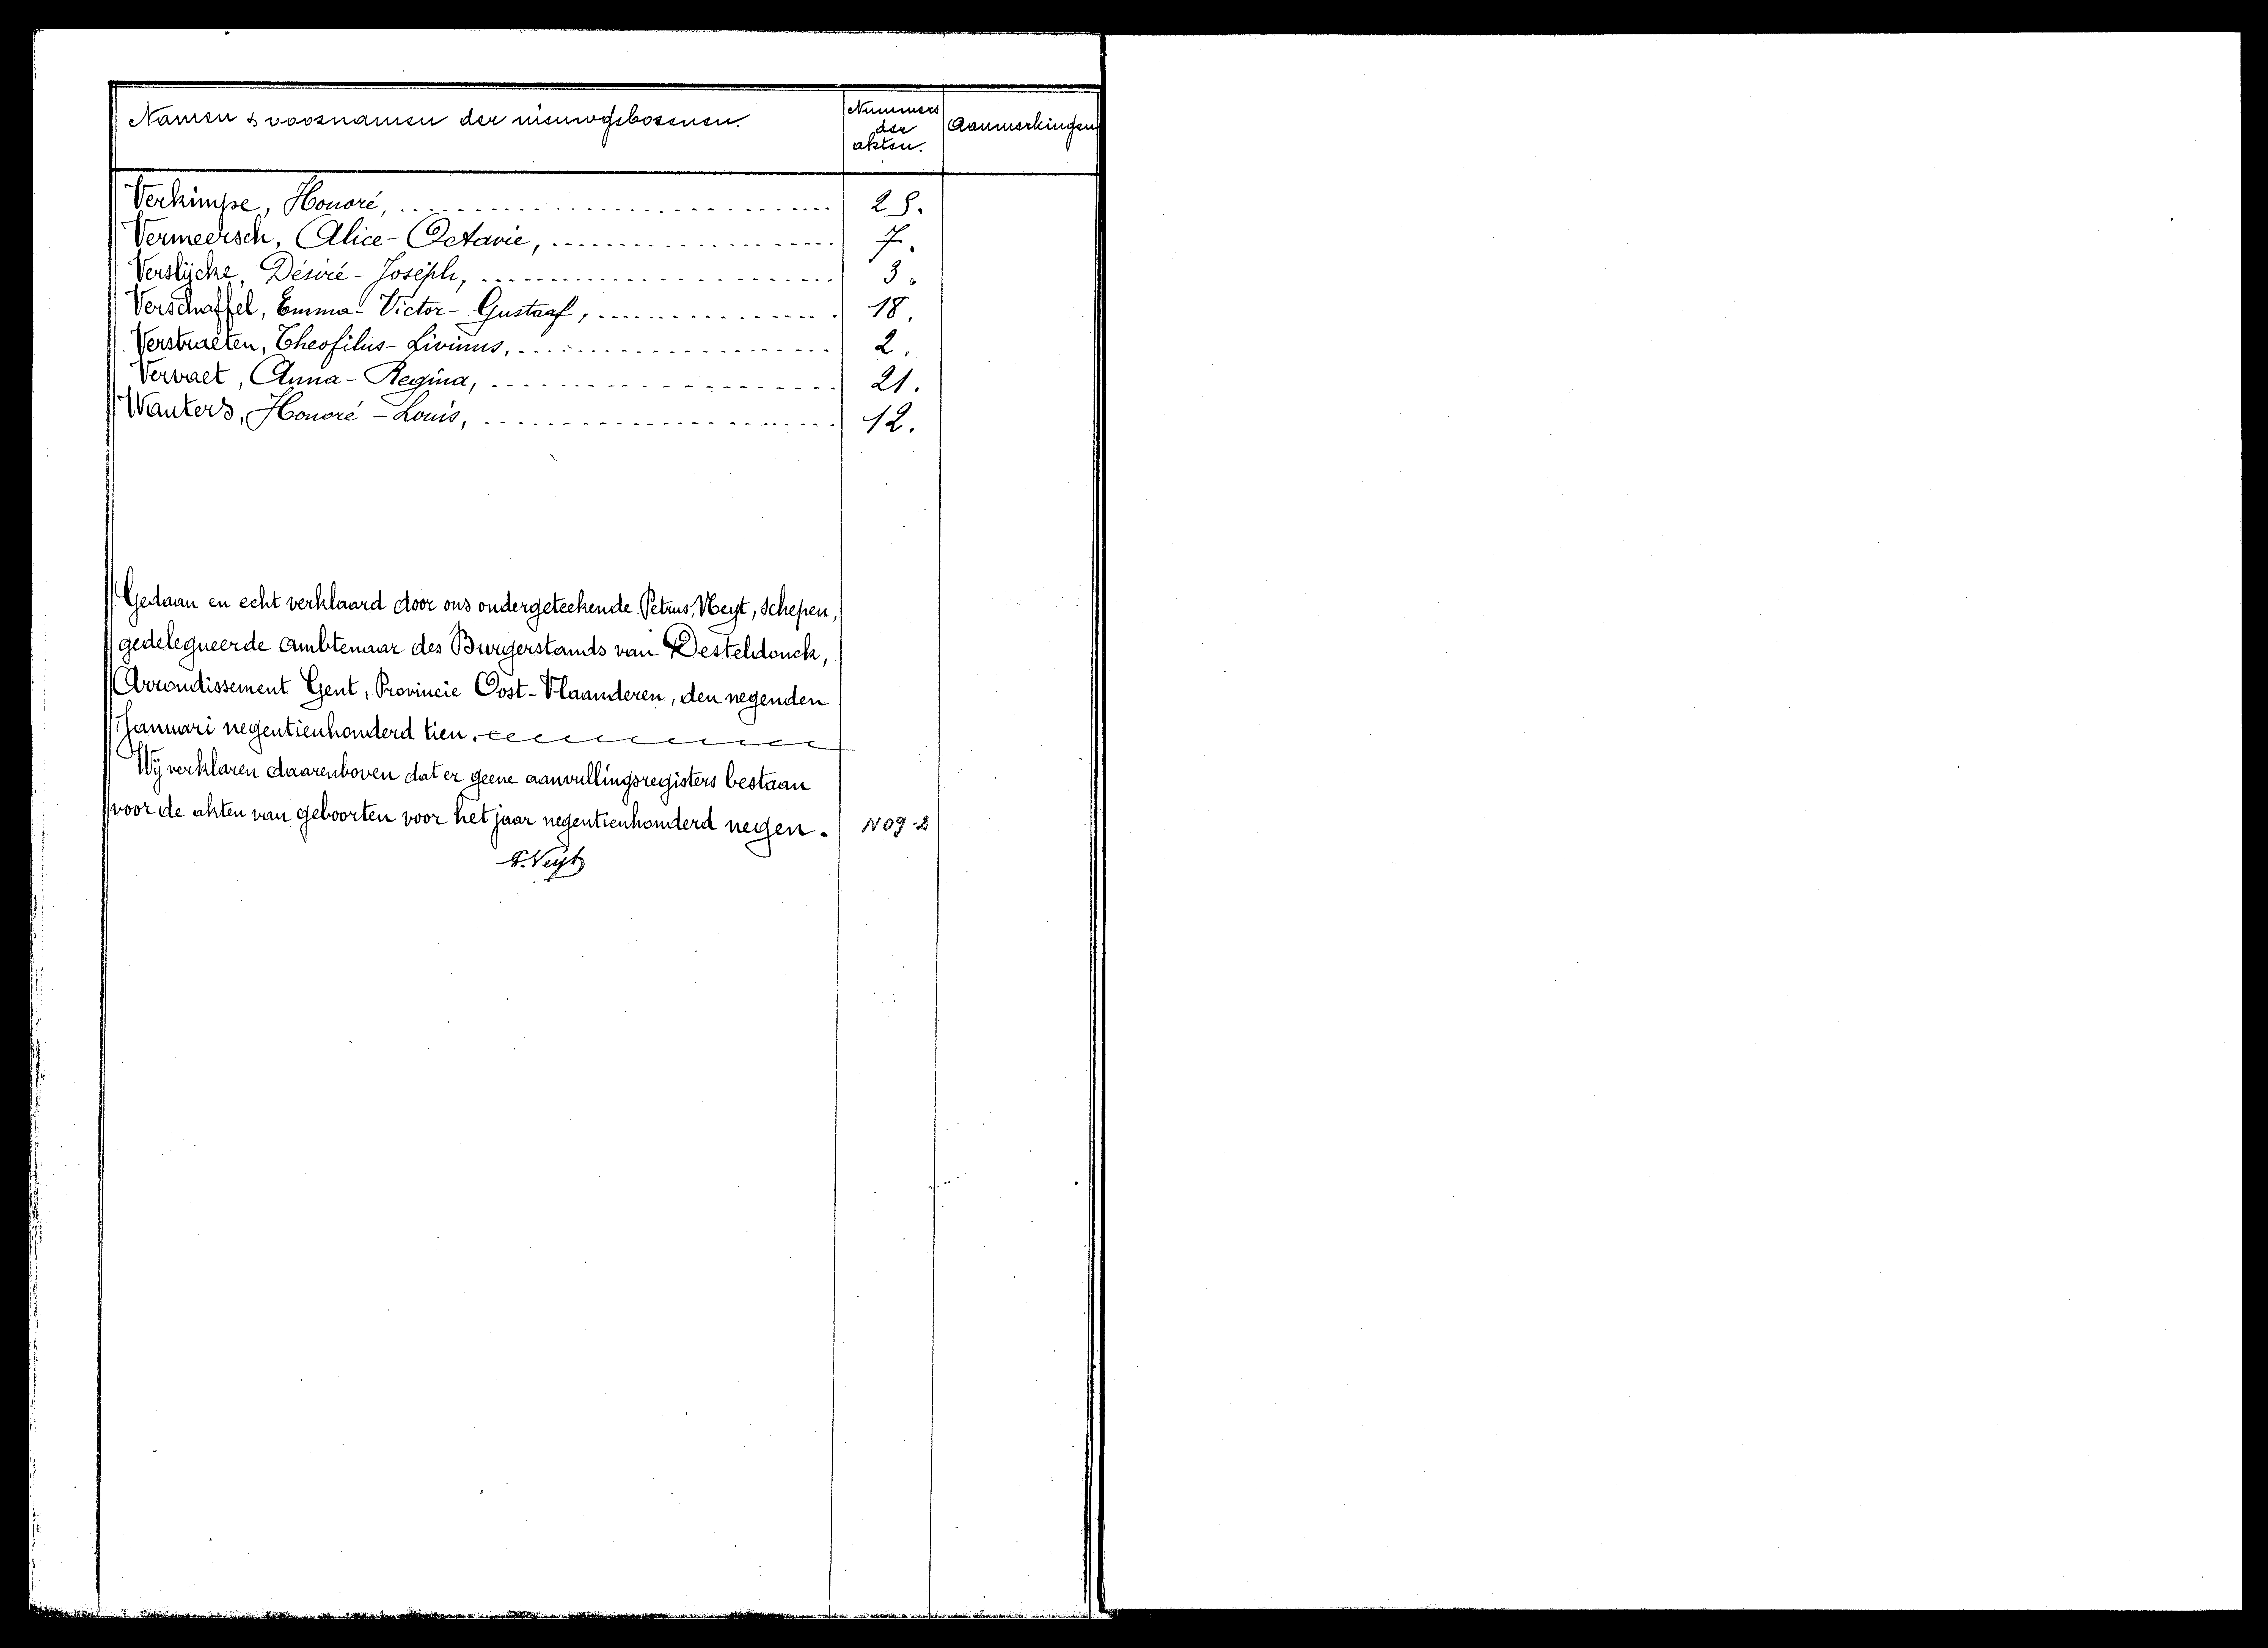 Namen & voornamen der nieuwgeborenen.
Nummers der akten.
Aanmerkingen
Verkimpe, Honoré, 28.
Vermeersch, Alice-Octavie, 7.
Verslijcke, Désiré-Joséph, 3.
Verschaffel, Emma-Victor-Gustaaf, 18.
Verstraeten, Theofilus-Livinus, 2.
Vervaet, Anna-Regina, 21.
Wauters, Honoré-Louis, 12.
Gedaan en echt verklaard door ons ondergeteekende Petrus Neyt, Schepen,
gedelegueerde ambtenaar des Burgerstands van Desteldonck,
Arrondissement Gent, Provincie Oost-Vlaanderen, den negenden
Januari negentienhonderd tien.
Wij verklaren daarenboven dat er geene aanvullingsregisters bestaan
voor de akten van geboorten voor het jaar negentienhonderd negen. N09-2
P. Neyt